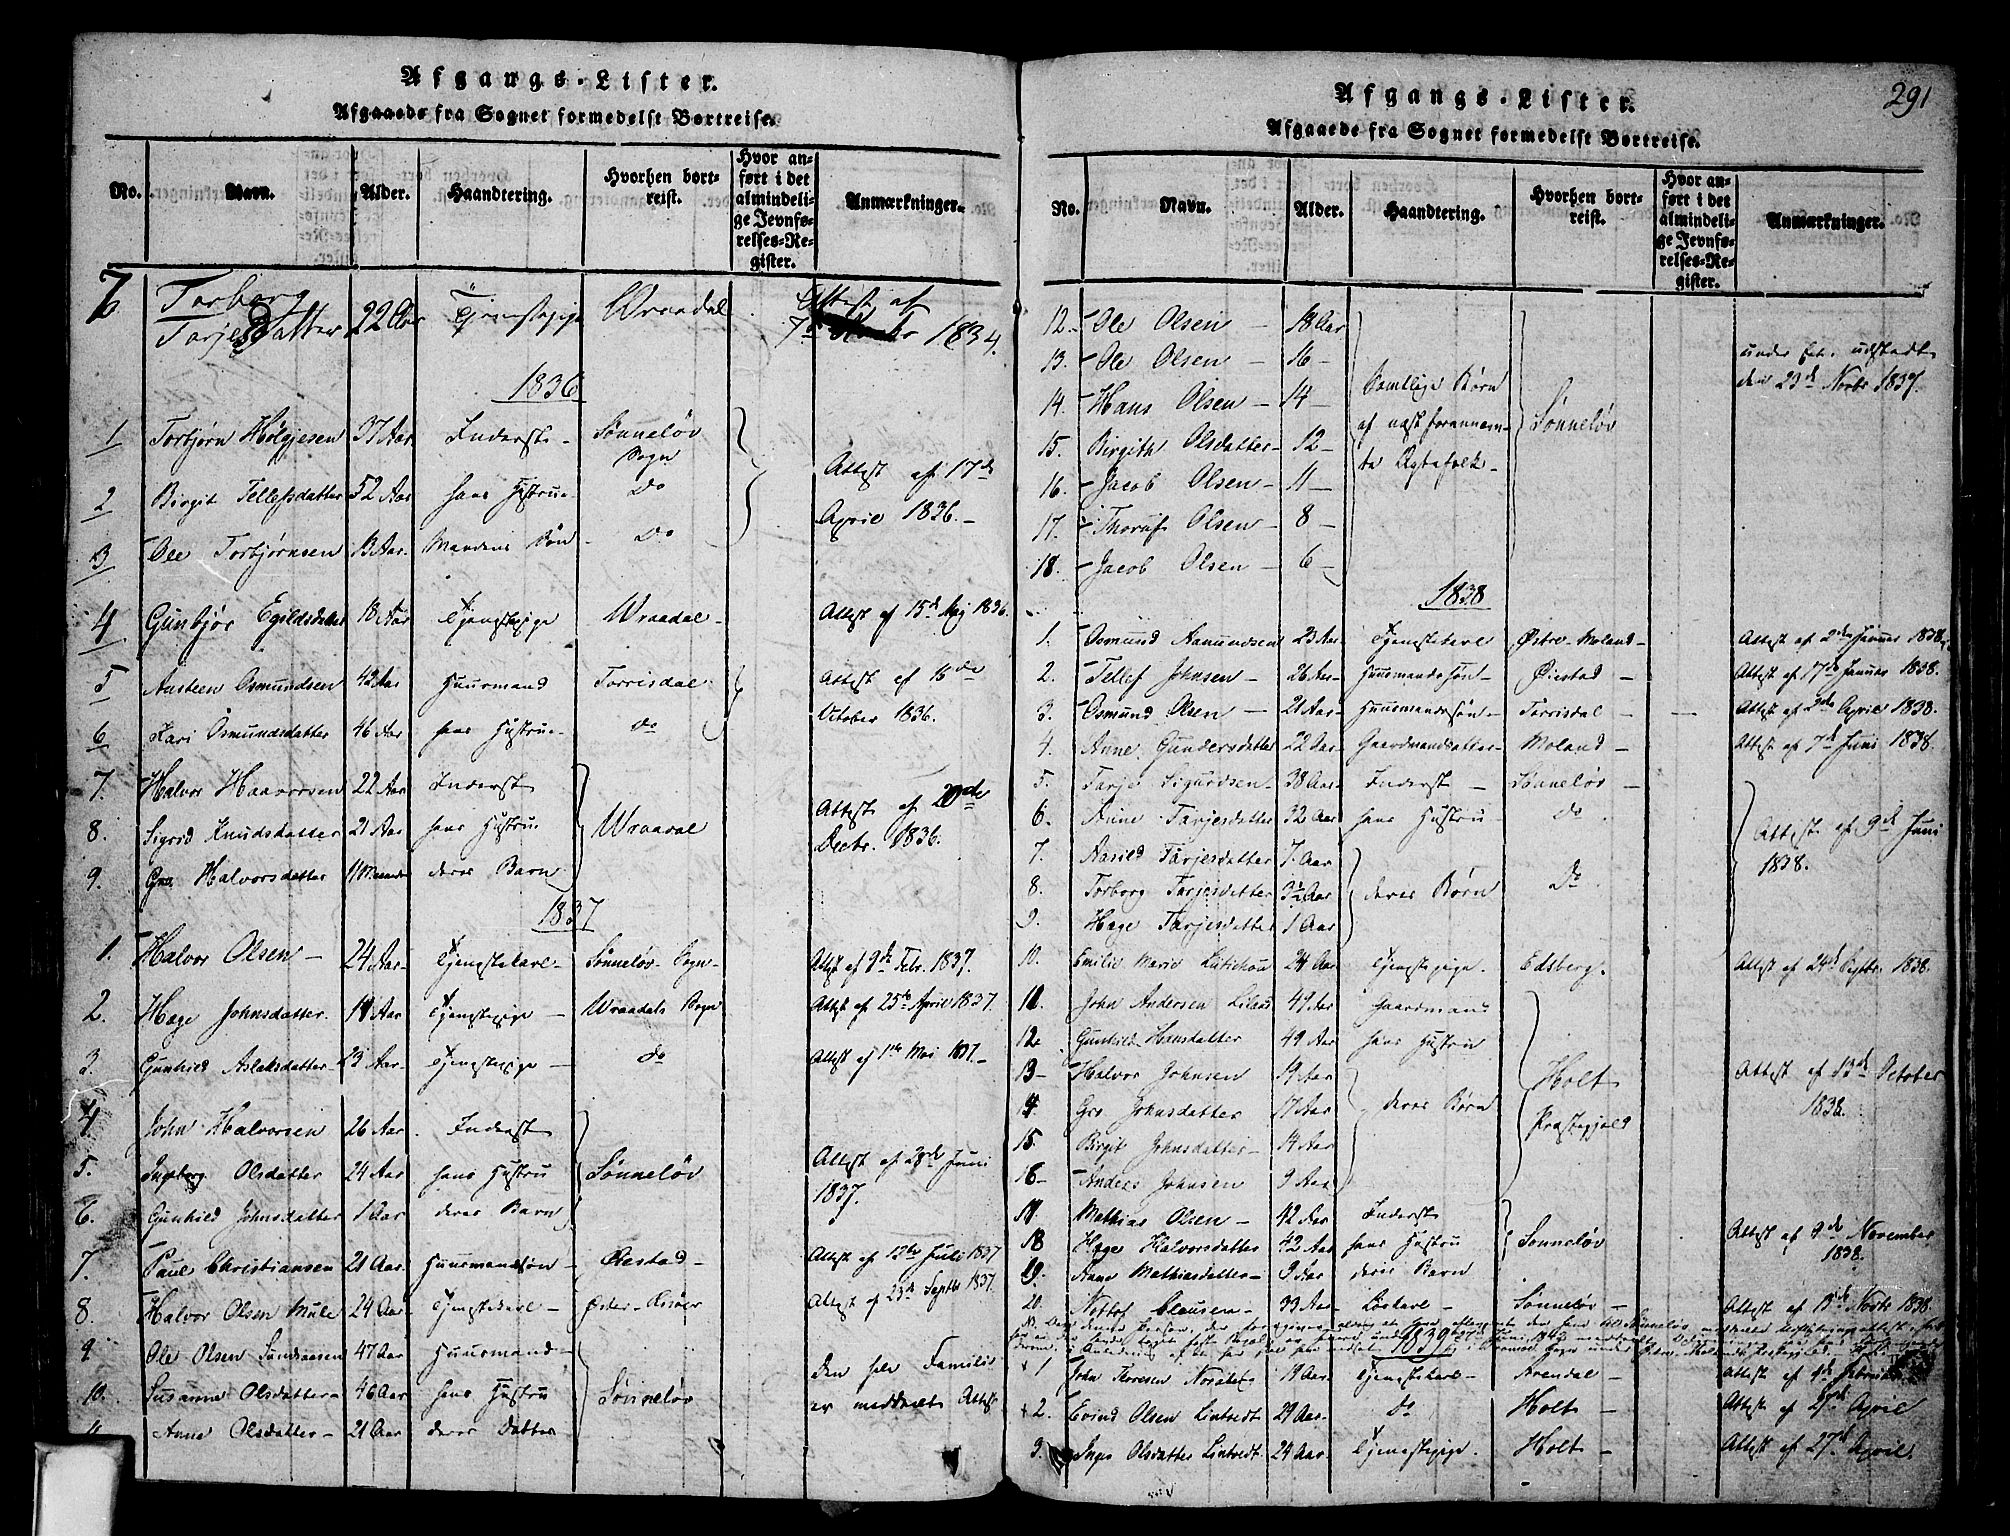 Afgangs-Lister.
Afgaaede fra Sognet formedelst Bortreise.
No. Navn. Alder. Haandtering. Hvorhen bortreist. Hvor anført i det almindelige Jevnførelses-Register. Anmærkninger.
7 Torborg Tarjesdatter 22 Aar Tjenestepige Wraadal Attest af 1834.
1836
1 Torbjørn Hølgjesen 37 Aar Inderst Sønneløv Sogn
2 Birgit Tellefsdatter 52 Aar hans Hustrue Do Attest af 17de April 1836.
3 Ole Torbjørnsen 13 Aar Mandens Søn Do
4 Gunbjør Egildsdatter 18 Aar Tjenestepige Wraadal Attest af 15de Maj 1836.
5 Austeen Osmundsen 42 Aar Huusmand Torrisdal Attest af 16de October 1836.
6 Kari Osmundsdatter 46 Aar hans Hustrue do
7. Halvor Haavorsen 22 Aar Inderst
8. Sigrid Knudsdatter 21 Aar hans Hustru Wraadal Attest af 20de Decbr. 1836.
9. Gro Halvorsdatter 11 Maaneder deres Barn
1837
1. Halvor Olsen 24 Aar Tjenestekarl Sønneløv Sogn Attest af 9de Febr. 1837.
2. Hæge Johnsdatter 18 Aar Tjenestepige Wraadals Sogn Attest af 25de April 1837.
3. Gunhild Aslaksdatter 23 Aar Tjenestepige do Attest af 1ste Mai 1837.
4 John Halvorsen 26 Aar Inderst
5. Ingeborg Olsdatter 24 Aar hans Hustru Sønneløv Attest af 28de Juni 1837.
6. Gunhild Johnsdatter 1 Aar deres Barn
7. Paul Christiansen 21 Aar Huusmandssøn Øiestad Attest af 12te Juli 1837
8. Halvor Olsen Mule 24 Aar Tjenestekarl Øster-Risøer Attest af 23de Septbr 1837.
9 Ole Olsen Sundsaasen 47 Aar Huusmand
10. Susanne Olsdatter 46 Aar hans Hustru Sønneløv Den hele Familie er meddeelt Attest
11 Anne Olsdatter 21 Aar deres Datter
291
Afgangs-Lister.
Afgaaede fra Sognet formedelst Bortreise.
No. Navn. Alder. Haandtering. Hvorhen bortreist. Hvor anført i det almindelige Jevnførelses-Register. Anmærkninger.
12. Ole Olsen 18 Aar
13. Ole Olsen 16 under udstedt den 23de Novbr 1837.
14. Hans Olsen 14 Samtlige Børn
15. Birgith Olsdatter 12 af næst forannævnte Ægtefolk Sønneløv
16. Jacob Olsen 11
17. Thoruf Olsen 8
18. Jacob Olsen 6
1838
1. Osmund Aamundsen 23 Aar Tjenestekarl Østre Moland Attest af 2den Januar 1838.
2. Tellef Johnsen 26 Aar Huusmandssøn Øiestad Attest af 17de Januar 1838.
3. Osmund Olsen 21 Aar Huusmandssøn Torrisdal Attest af 3de April 1838.
4. Anne Gundersdatter 22 Aar Gaardmandsdatter Moland Attest af 7de Juni 1838.
5. Tarje Sigurdsen 38 Aar Inderst Sønneløv
6. Anne Tarjesdatter 32 Aar hans Hustru do Attest af 9de Juni 1838.
7. Aasild Tarjesdatter 7 Aar
8. Torborg Tarjesdatter 3½ Aar deres Børn Do
9. Hæge Tarjesdatter 1 Aar
10. Emilie Marie Lütichou 24 Aar Tjenestepige Edsberg Attest af 24de Septbr. 1838.
11. John Andersen 49 Aar Gaardmand
12 Gunhild Hansdatter 49 Aar hans Hustru
13 Halvor Johnsen 19 Aar Holt Attest af 13de October 1838.
14 Gro Johnsdatter 17 Aar deres Børn Præstegjeld
15. Birgit Johnsdatter 14 Aar
16 Anders Johnsen 9 Aar
17 Mathias Olsen 42 Aar Inderst
18 Hæge Halvorsdatter 42 Aar hans Hustru Sønneløv Attest af 9de November 1838.
19. Anne Mathiasdatter 9 Aar deres Barn
20. Nottof Clausen 33 Aar Løskarl Sønneløv Attest af 13de Novbr 1838.
1839
1 John Thoresen 19 Aar Tjenestekarl Arendal Attest af
2. Evind Olsen Lintvedt 29 Aar do Holt Attest af 27de April
3. Inger Olsdatter Lintvedt 24 Aar Tjenestepige Holt Attest af 27de April.